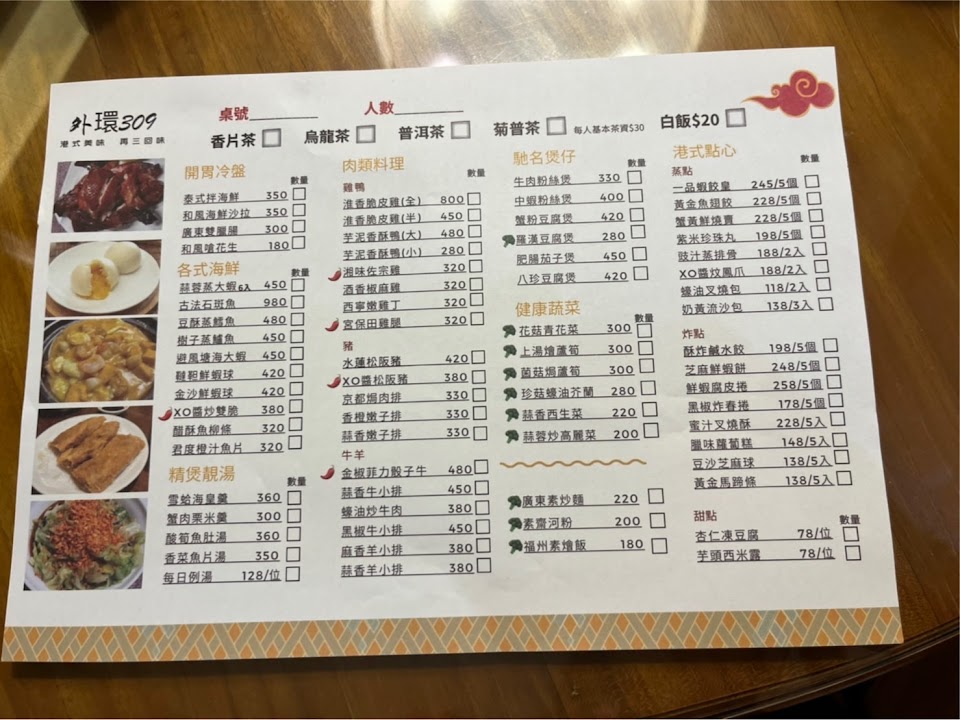 外環309
港式美味 再三回味
桌號
人數
香片茶
烏龍茶
普洱茶
菊普茶
每人基本茶資$30
白飯$20
開胃冷盤
數量
泰式拌海鮮 350
和風海鮮沙拉 350
廣東雙臘腸 300
和風嗆花生 180
各式海鮮
數量
蒜蓉蒸大蝦6入 450
古法石斑魚 980
豆酥蒸鱈魚 480
樹子蒸鱸魚 450
避風塘海大蝦 450
韃靼鮮蝦球 420
金沙鮮蝦球 420
XO醬炒雙脆 380
醋酥魚柳條 320
君度橙汁魚片 320
精煲靚湯
數量
雪蛤海皇羹 360
蟹肉栗米羹 300
酸筍魚肚湯 360
香菜魚片湯 350
每日例湯 128/位
肉類料理
雞鴨
數量
淮香脆皮雞(全) 800
淮香脆皮雞(半) 450
芋泥香酥鴨(大) 480
芋泥香酥鴨(小) 280
湘味佐宗雞 320
酒香椒麻雞 320
西寧嫩雞丁 320
宮保田雞腿 320
豬
水蓮松阪豬 420
XO醬松阪豬 380
京都焗肉排 330
香橙嫩子排 330
蒜香嫩子排 330
牛羊
金椒菲力骰子牛 480
蒜香牛小排 450
蠔油炒牛肉 380
黑椒牛小排 450
麻香羊小排 380
蒜香羊小排 380
馳名煲仔
數量
牛肉粉絲煲 330
中蝦粉絲煲 400
蟹粉豆腐煲 420
羅漢豆腐煲 280
肥腸茄子煲 450
八珍豆腐煲 420
健康蔬菜
數量
花菇青花菜 300
上湯燴蘆筍 300
菌菇焗蘆筍 300
珍菇蠔油芥蘭 280
蒜香西生菜 220
蒜蓉炒高麗菜 200
數量
廣東素炒麵 220
素齋河粉 200
福州素燴飯 180
港式點心
蒸點
數量
一品蝦餃皇 245/5個
黃金魚翅餃 228/5個
蟹黃鮮燒賣 228/5個
紫米珍珠丸 198/5個
豉汁蒸排骨 188/2入
XO醬炆鳳爪 188/2入
蠔油叉燒包 118/2入
奶黃流沙包 138/3入
炸點
酥炸鹹水餃 198/5個
芝麻鮮蝦餅 248/5個
鮮蝦腐皮捲 258/5個
黑椒炸春捲 178/5個
蜜汁叉燒酥 228/5入
臘味蘿蔔糕 148/5入
豆沙芝麻球 138/5入
黃金馬蹄條 138/5入
甜點
數量
杏仁凍豆腐 78/位
芋頭西米露 78/位